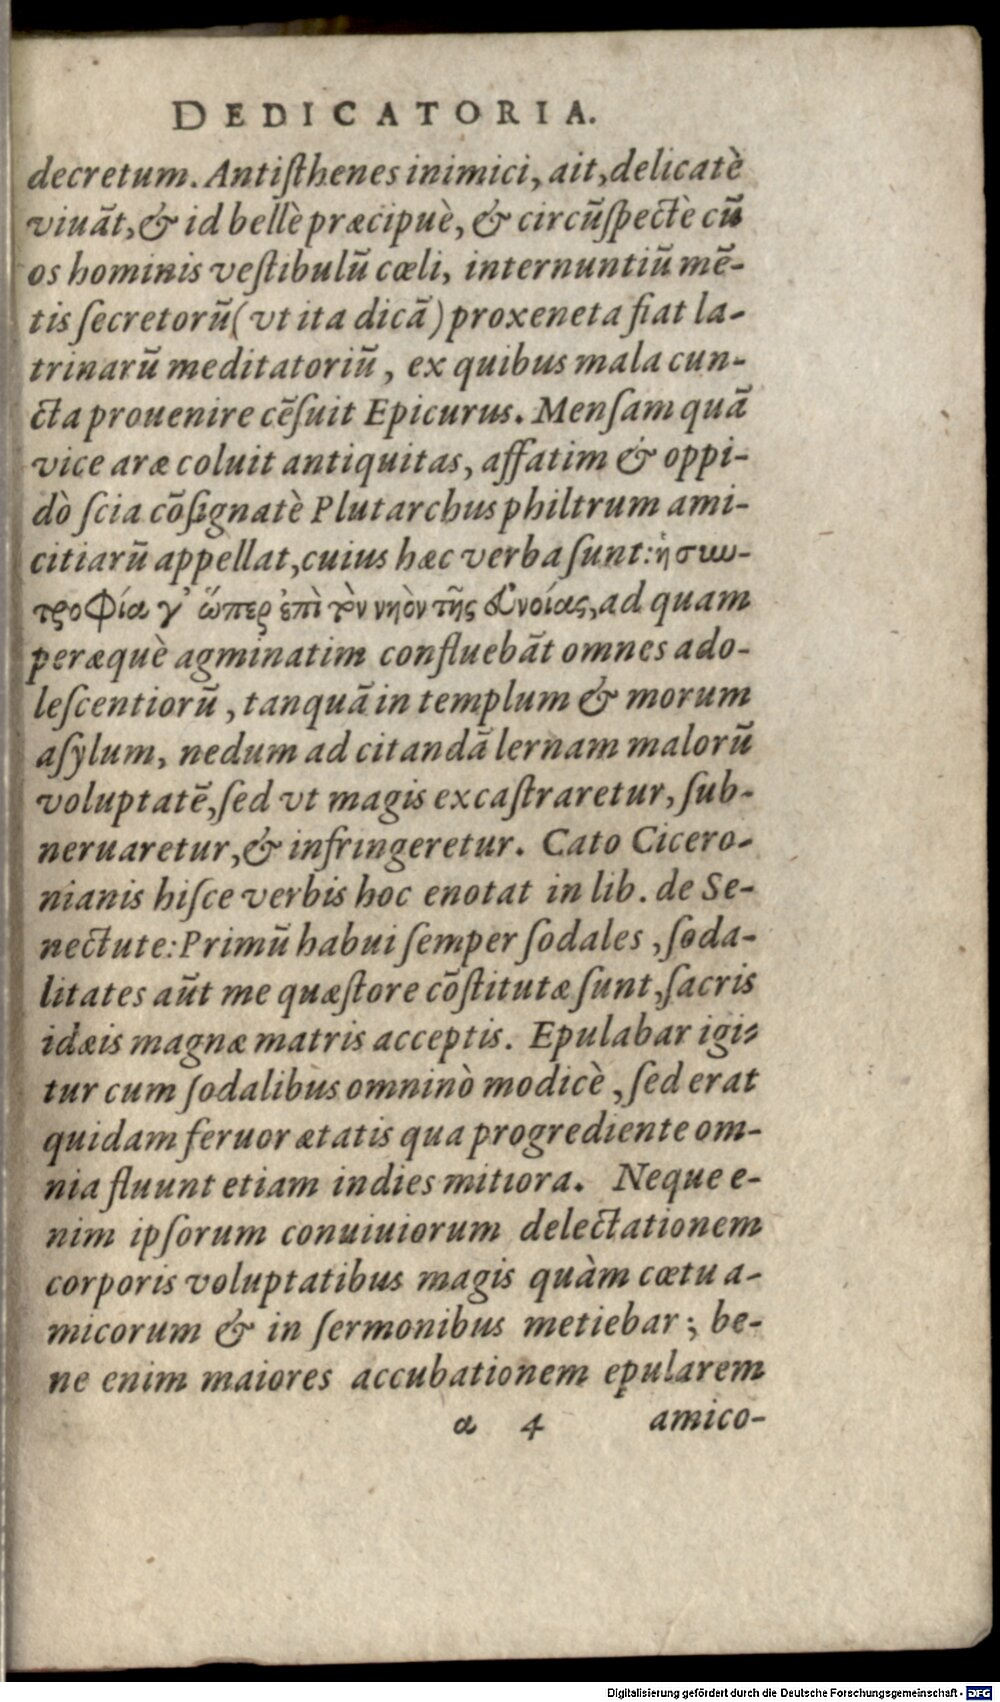 DEDICATORIA.
decretum. Antiſthenes inimici, ait, delicatè
viuāt, & id bellè præcipuè, & circūſpectè cū
os hominis veſtibulū cœli, internuntiū mē-
tis ſecretorū (vt ita dicā) proxeneta fiat la-
trinarū meditatoriū, ex quibus mala cun-
cta prouenire cēſuit Epicurus. Menſam quā
vice aræ coluit antiquitas, affatim & oppi-
dò ſcia cōſignatè Plutarchus philtrum ami-
citiarū appellat, cuius hæc verba ſunt: ἡ συν-
τροφία γ' ὥπερ ἐπὶ τὸν νηὸν τῆς εὐνοίας, ad quam
peræquè agminatim confluebāt omnes ado-
leſcentiorū, tanquā in templum & morum
aſylum, nedum ad citandā lernam malorū
voluptatē, ſed vt magis excaſtraretur, ſub-
neruaretur, & infringeretur. Cato Cicero-
nianis hiſce verbis hoc enotat in lib. de Se-
nectute: Primū habui ſemper ſodales, ſoda-
litates aūt me quæſtore cōſtitutæ ſunt, ſacris
idæis magnæ matris acceptis. Epulabar igi-
tur cum ſodalibus omninò modicè, ſed erat
quidam feruor ætatis qua progrediente om-
nia fluunt etiam indies mitiora. Neque e-
nim ipſorum conuiuiorum delectationem
corporis voluptatibus magis quàm cœtu a-
micorum & in ſermonibus metiebar; be-
ne enim maiores accubationem epularem
a 4 amico-
Digitalisierung gefördert durch die Deutsche Forschungsgemeinschaft - DFG